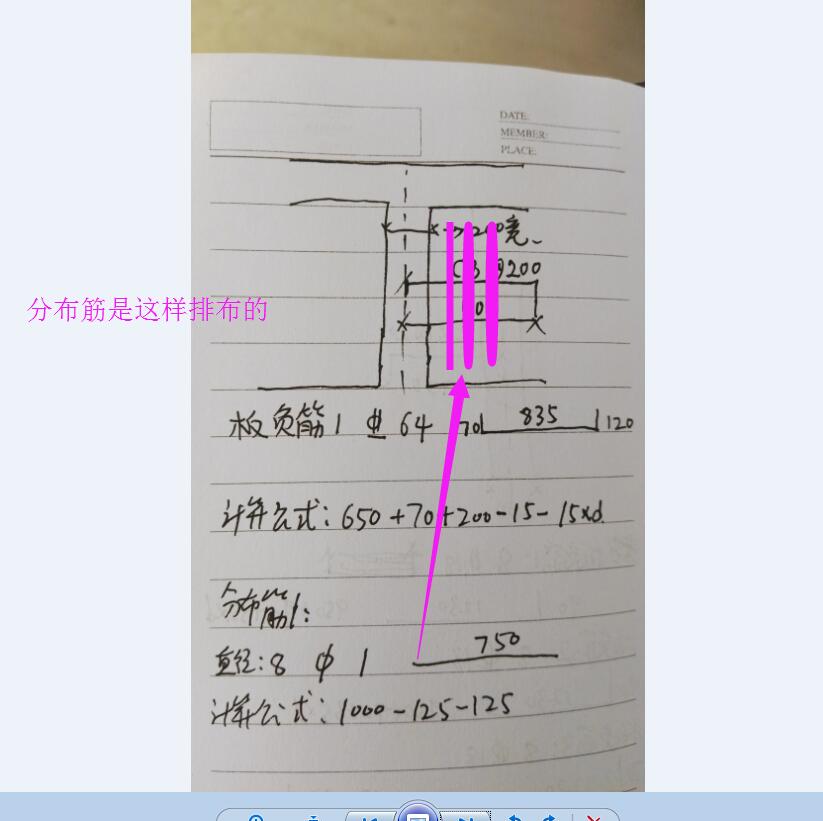 DATE:
MEMBER:
PLACE:
宽
@200
分布筋是这样排布的
板负筋1 64 70 835 120
计算公式：650+70+200-15-15xd.
分布筋1：
直径：8 ф 1 750
计算公式：1000-125-125